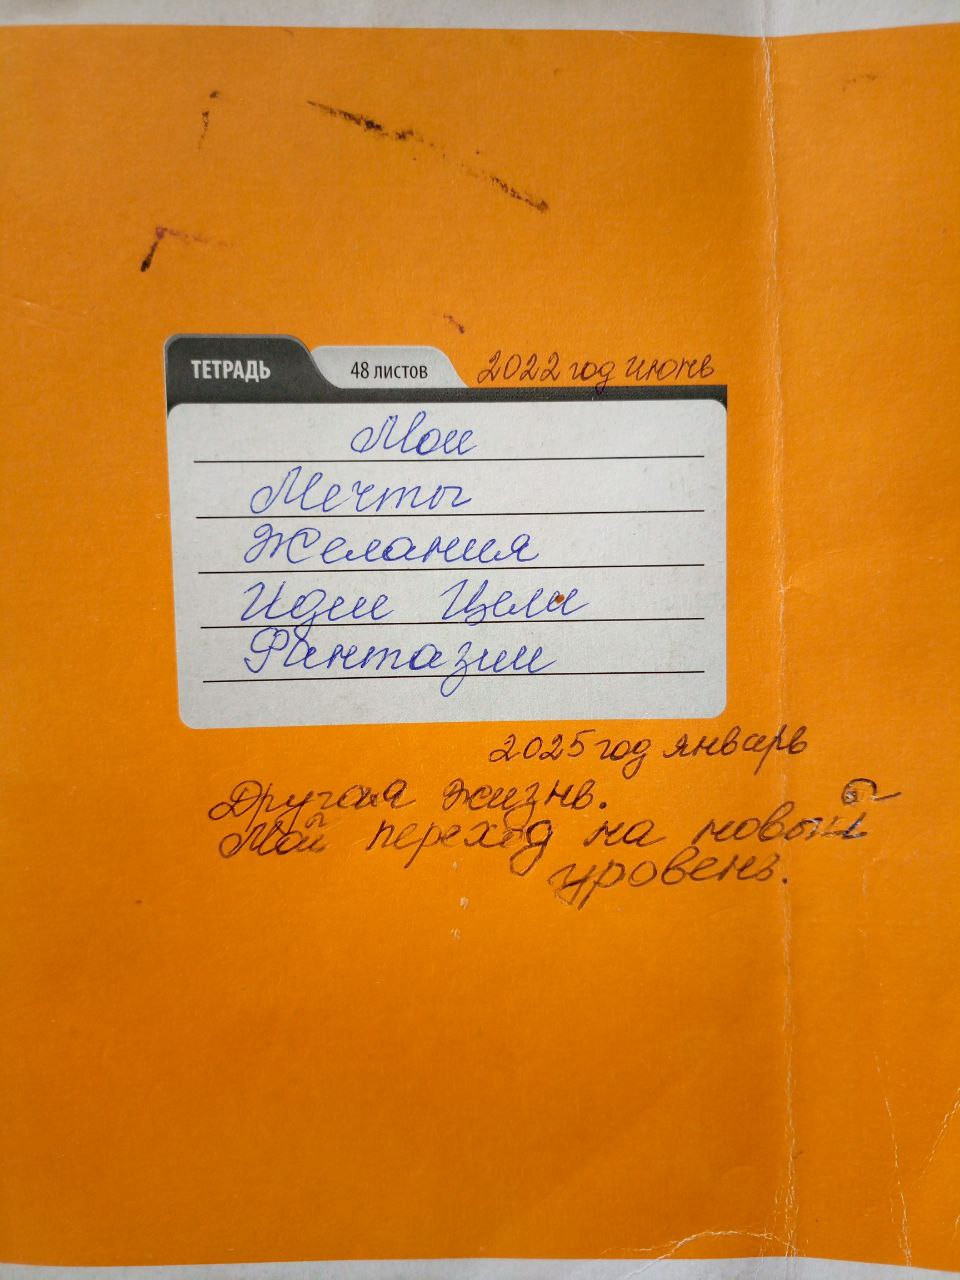 ТЕТРАДЬ 48 листов 2022 год июнь
Мои
Мечты
Желания
Идеи Цели
Фантазии
2025 год январь
Другая жизнь.
Мой переход на новый
уровень.